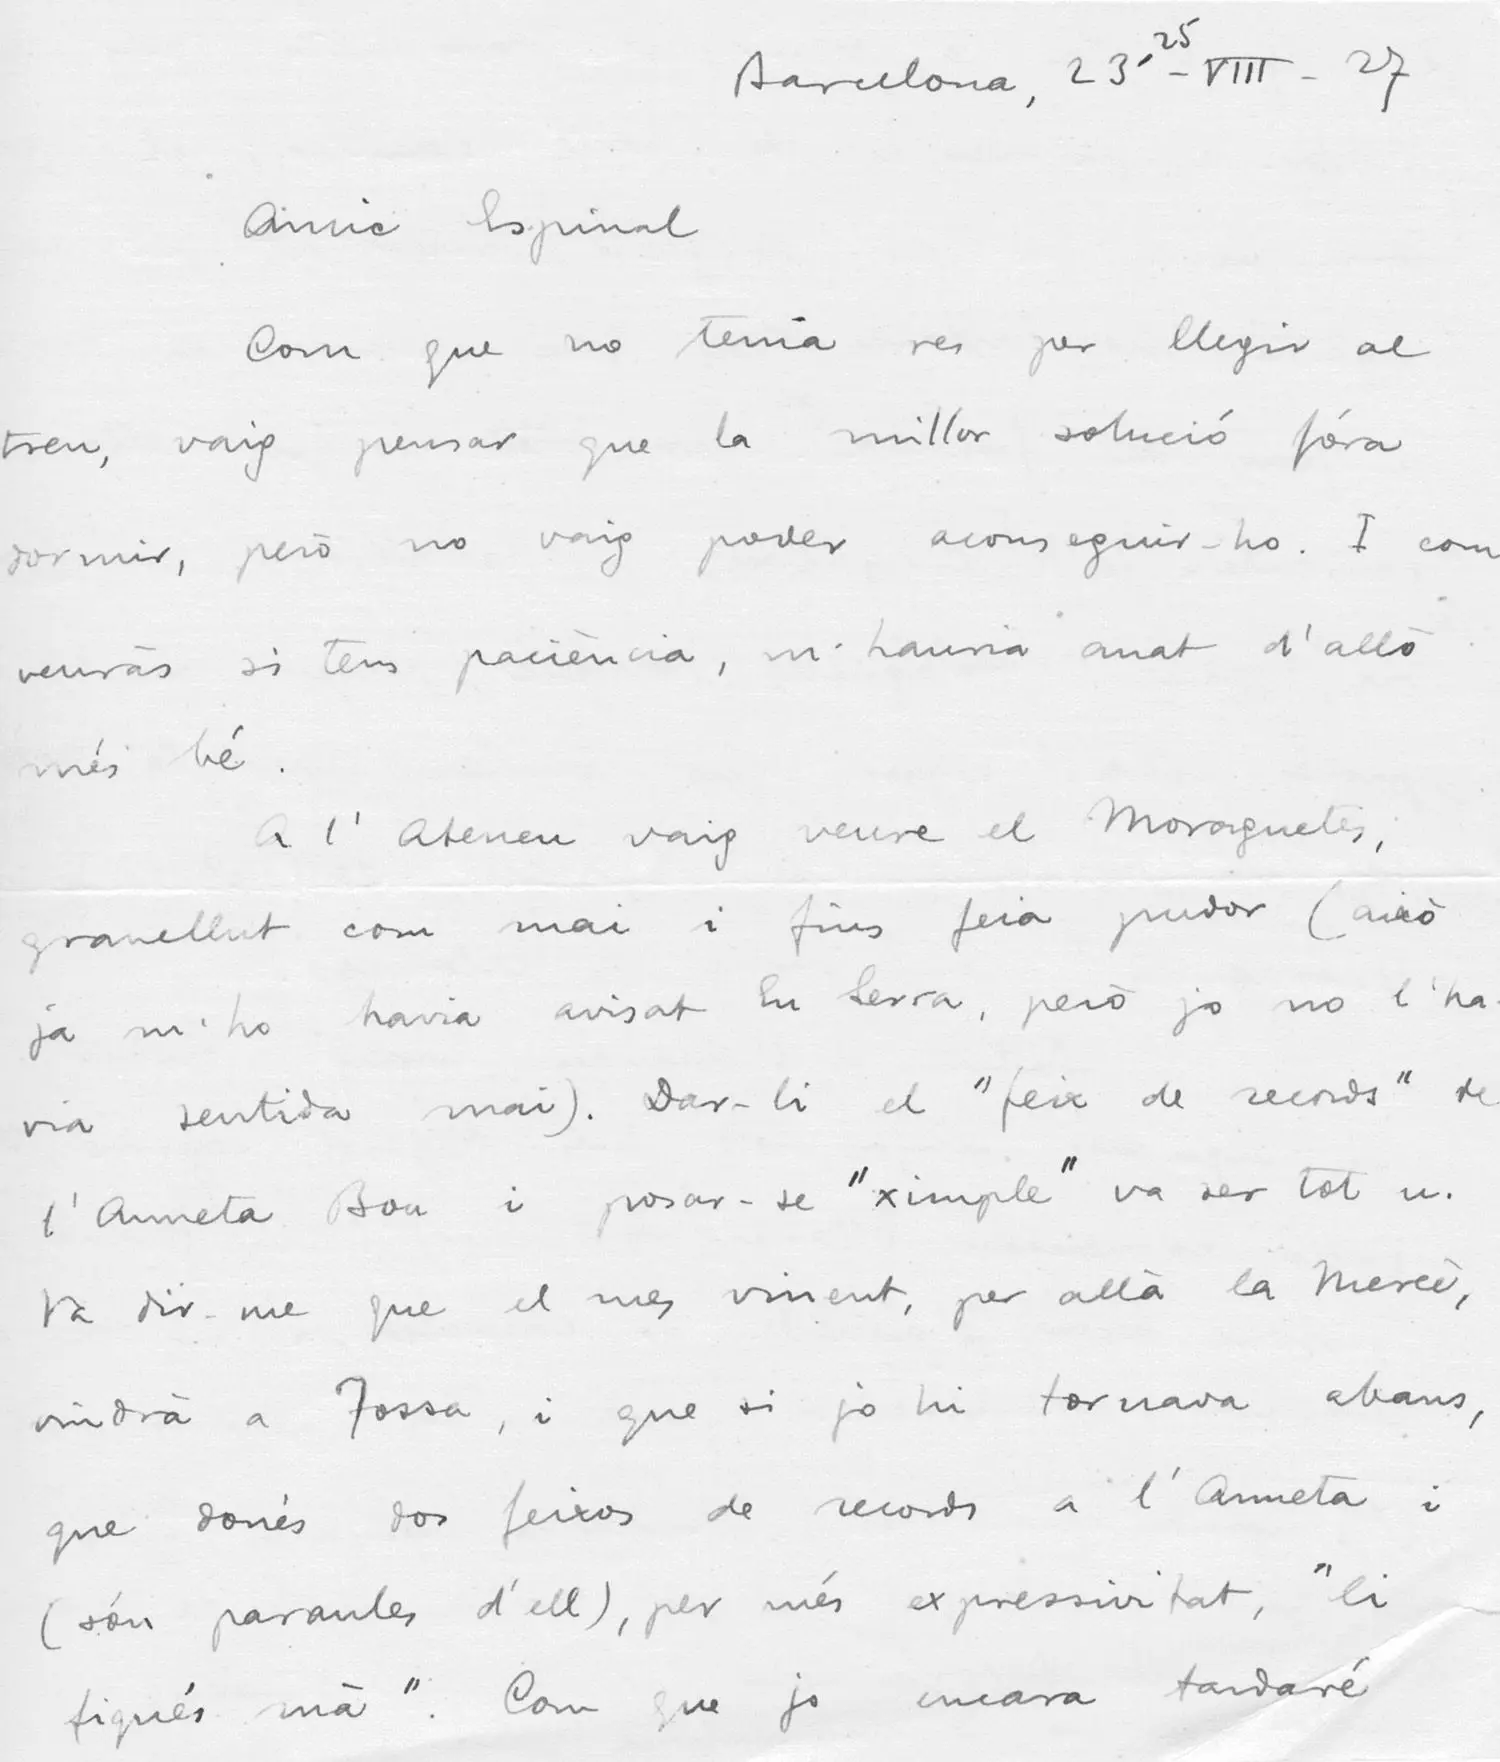 Barcelona, 23·25-VIII-27
Amic Espinal
Com que no tenia res per llegir al
tren, vaig pensar que la millor solució fóra
dormir, però no vaig poder aconseguir-ho. I com
veuràs si tens paciència, m'hauria anat d'allò
més bé.
A l'Ateneu vaig veure el Moraguetes,
granellut com mai i fins feia pudor (això
ja m'ho havia avisat En Serra, però jo no l'ha-
via sentida mai). Dar-li el "feix de records" de
l'Anneta Bou i posar-se "ximple" va ser tot u.
Va dir-me que el mes vinent, per allà la Mercè,
vindrà a Tossa, i que si jo hi tornava abans,
que donés dos feixos de records a l'Anneta i
(són paraules d'ell), per més expressivitat, "li
fiqués mà". Com que jo encara tardaré